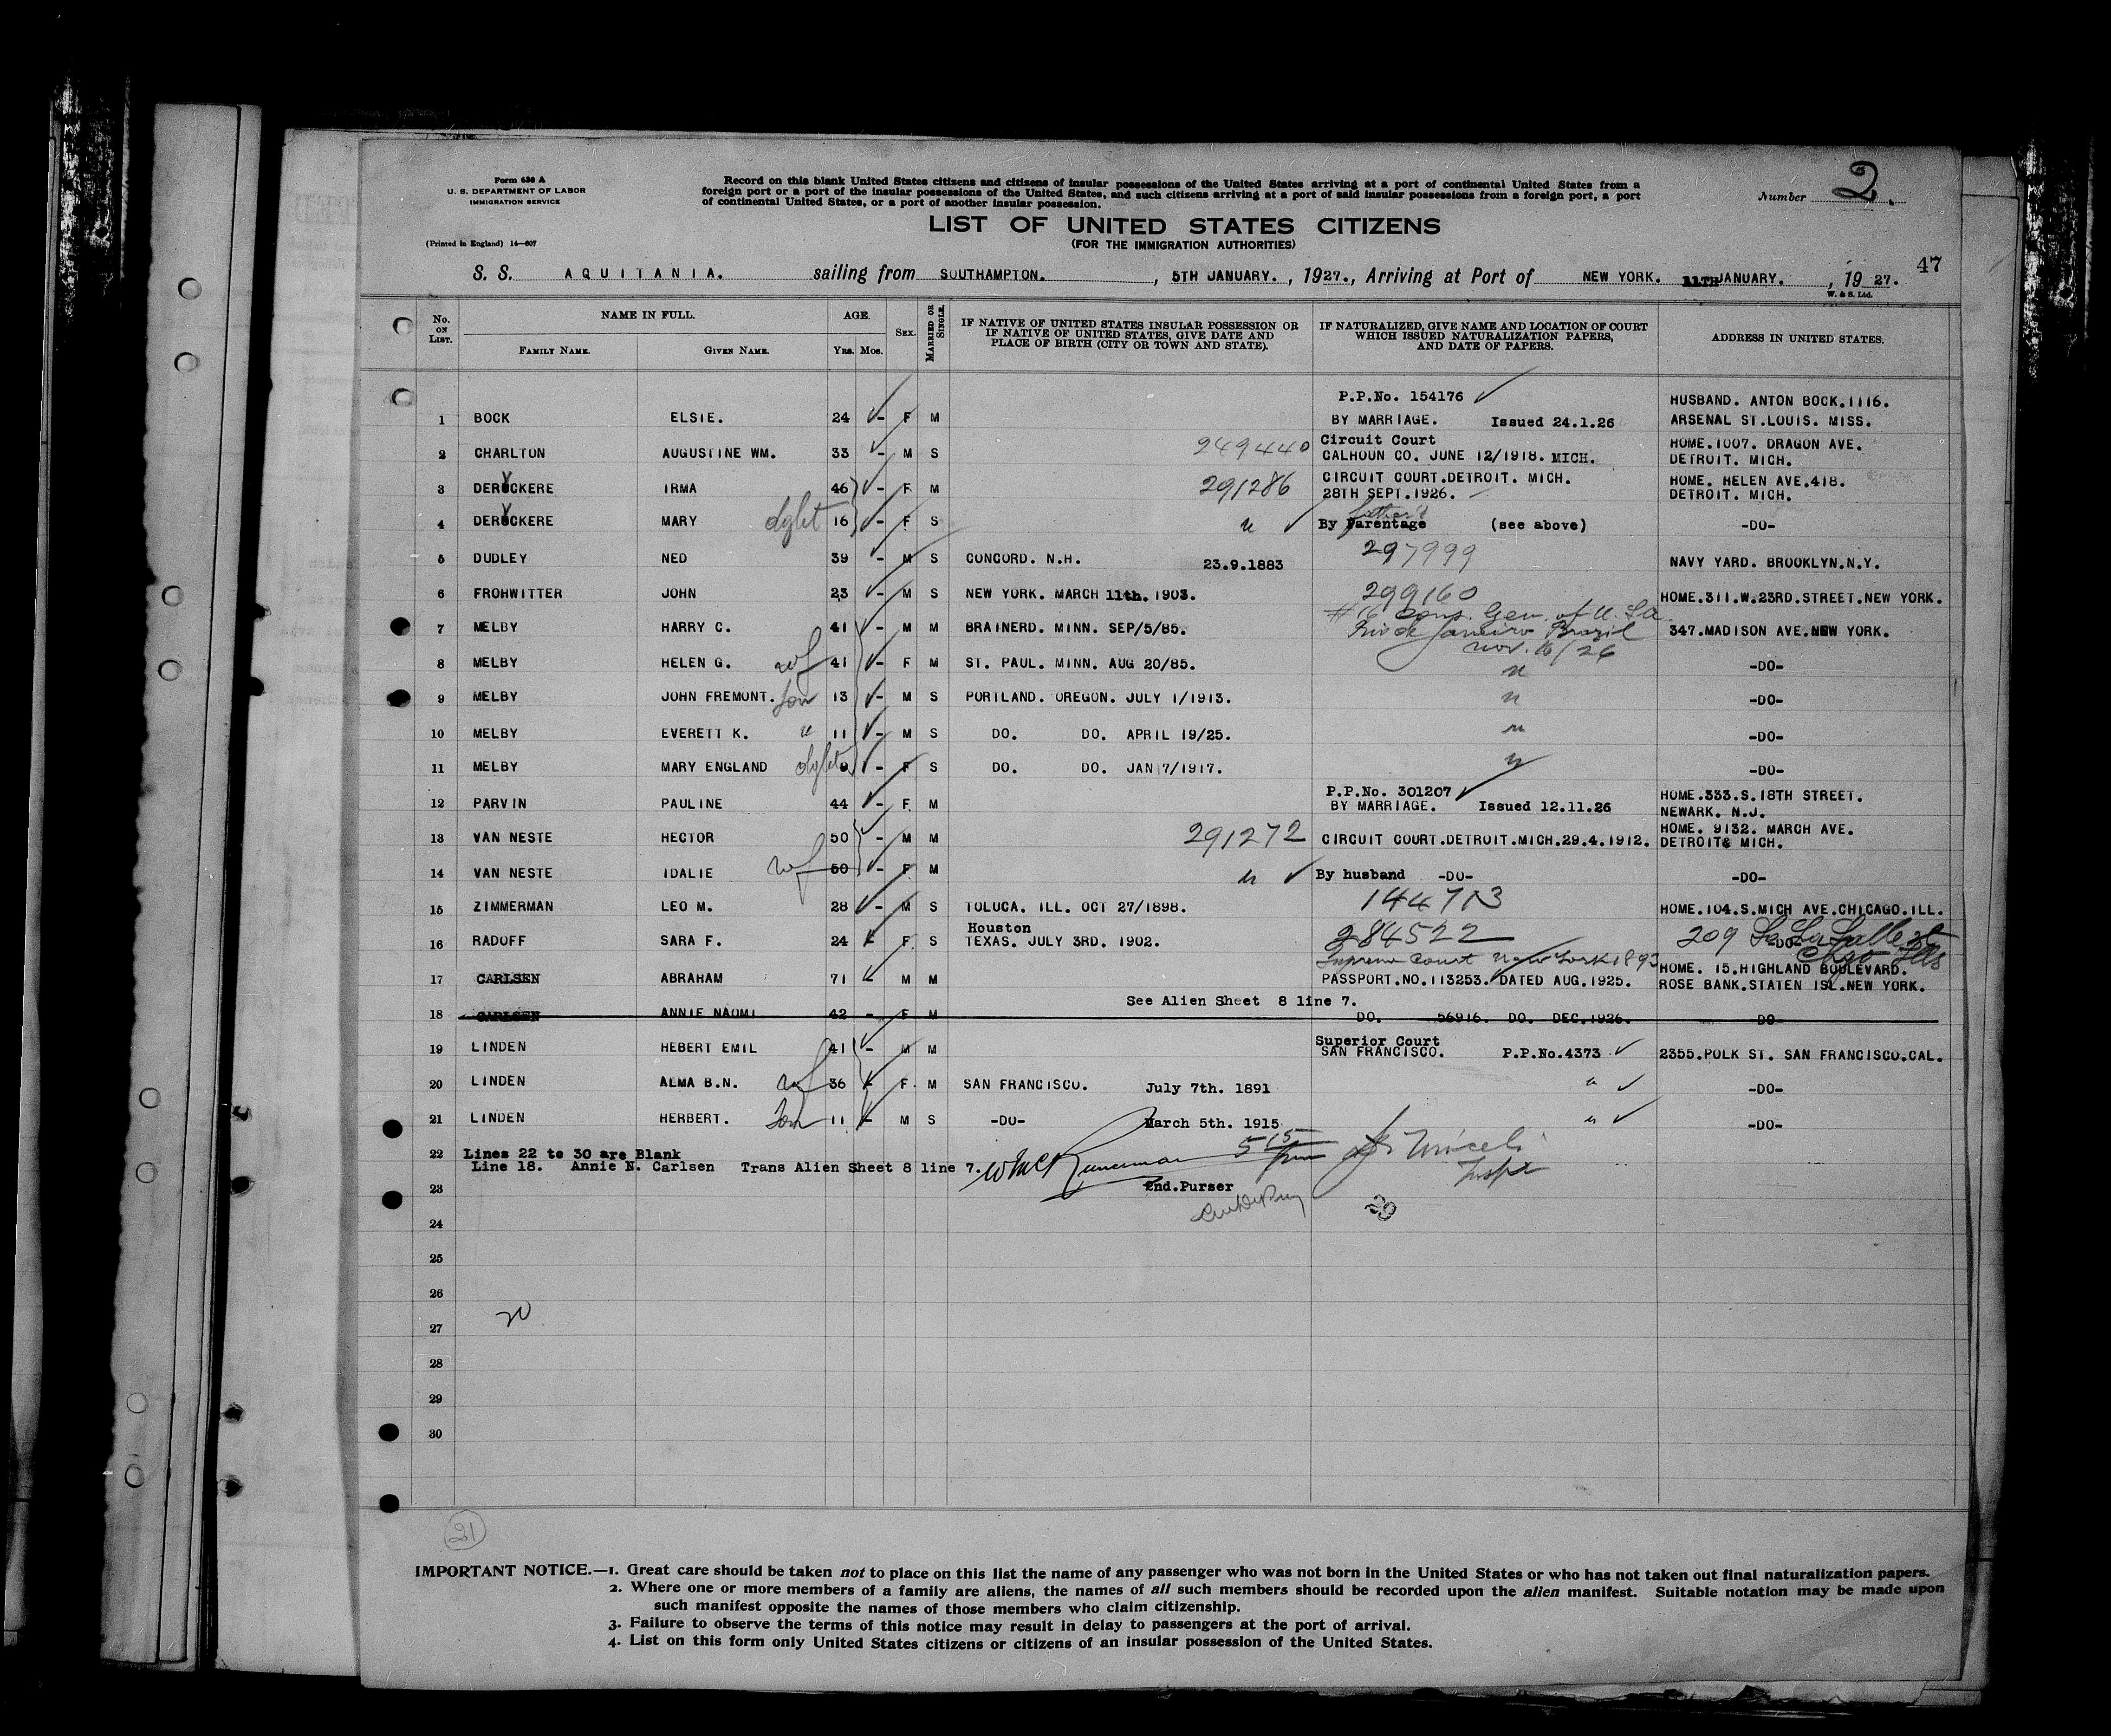 Form 630 A
U. S. DEPARTMENT OF LABOR
IMMIGRATION SERVICE
(Printed in England) 14—607
Record on this blank United States citizens and citizens of insular possessions of the United States arriving at a port of continental United States from a
foreign port or a port of the insular possessions of the United States, and such citizens arriving at a port of said insular possessions from a foreign port, a port
of continental United States, or a port of another insular possession.
Number 2.
LIST OF UNITED STATES CITIZENS
(FOR THE IMMIGRATION AUTHORITIES)
47
S. S. AQUITANIA. sailing from SOUTHAMPTON. , 5TH JANUARY. , 1927., Arriving at Port of NEW YORK. 11TH JANUARY. , 19 27.
W. & S. Ltd.
No. ON LIST. NAME IN FULL. FAMILY NAME. GIVEN NAME. AGE. YRS. MOS. SEX. MARRIED OR SINGLE.
IF NATIVE OF UNITED STATES INSULAR POSSESSION OR
IF NATIVE OF UNITED STATES, GIVE DATE AND
PLACE OF BIRTH (CITY OR TOWN AND STATE).
IF NATURALIZED, GIVE NAME AND LOCATION OF COURT
WHICH ISSUED NATURALIZATION PAPERS,
AND DATE OF PAPERS.
ADDRESS IN UNITED STATES.
P.P.No. 154176 HUSBAND. ANTON BOCK.1116.
1 BOCK ELSIE. 24 - F M BY MARRIAGE. Issued 24.1.26 ARSENAL ST.LOUIS. MISS.
Circuit Court HOME.1007. DRAGON AVE.
2 CHARLTON AUGUSTINE WM. 33 - M S 249440 CALHOUN CO. JUNE 12/1918. MICH. DETROIT. MICH.
CIRCUIT COURT.DETROIT. MICH. HOME. HELEN AVE.418.
3 DERYCKERE IRMA 46 - F M 291286 28TH SEPT.1926. DETROIT. MICH.
4 DERYCKERE MARY dght 16 - F S " By father's Parentage (see above) -DO-
5 DUDLEY NED 39 - M S CONCORD. N.H. 23.9.1883 297999 NAVY YARD. BROOKLYN.N.Y.
6 FROHWITTER JOHN 23 - M S NEW YORK. MARCH 11th. 1903. 299160 HOME.311.W.23RD.STREET.NEW YORK.
# 16 Cons. Gen. of U.S.A.
7 MELBY HARRY C. 41 - M M BRAINERD. MINN. SEP/5/85. Rio de Janeiro Brazil 347.MADISON AVE.NEW YORK.
Nov. 16/26
8 MELBY HELEN G. wf 41 - F M ST. PAUL. MINN. AUG 20/85. " -DO-
9 MELBY JOHN FREMONT. son 13 - M S PORTLAND. OREGON. JULY 1/1913. " -DO-
10 MELBY EVERETT K. " 11 - M S DO. DO. APRIL 19/25. " -DO-
11 MELBY MARY ENGLAND dght 9 - F S DO. DO. JAN 7/1917. " -DO-
P.P.No. 301207 HOME.333.S.18TH STREET.
12 PARVIN PAULINE 44 - F. M BY MARRIAGE. Issued 12.11.26 NEWARK. N.J.
HOME. 9132. MARCH AVE.
13 VAN NESTE HECTOR 50 - M M 291272 CIRCUIT COURT.DETROIT.MICH.29.4.1912. DETROIT& MICH.
14 VAN NESTE IDALIE wf 50 - F M " By husband -DO- -DO-
15 ZIMMERMAN LEO M. 28 - M S TOLUCA. ILL. OCT 27/1898. 144713 HOME.104.S.MICH AVE.CHICAGO.ILL.
Houston
16 RADOFF SARA F. 24 - F. S TEXAS. JULY 3RD. 1902. 284522 209 So La Salle st
Chgo Ills
Supreme Court New York 1893 HOME. 15.HIGHLAND BOULEVARD.
17 CARLSEN ABRAHAM 71 - M M PASSPORT.NO.113253. DATED AUG.1925. ROSE BANK.STATEN ISL.NEW YORK.
See Alien Sheet 8 line 7.
18 CARLSEN ANNIE NAOMI 42 - F M DO. 56916. DO. DEC.1926. DO
Superior Court
19 LINDEN HEBERT EMIL 41 - M M SAN FRANCISCO. P.P.No.4373 2355.POLK ST. SAN FRANCISCO.CAL.
20 LINDEN ALMA B.N. wf 36 - F. M SAN FRANCISCO. July 7th. 1891 " -DO-
21 LINDEN HERBERT. son 11 - M S -DO- March 5th. 1915 " -DO-
22 Lines 22 to 30 are Blank
Line 18. Annie N. Carlsen Trans Alien Sheet 8 line 7.
Inspr
23 2nd.Purser
20
24
25
26
27
28
29
30
21
IMPORTANT NOTICE.—1. Great care should be taken not to place on this list the name of any passenger who was not born in the United States or who has not taken out final naturalization papers.
2. Where one or more members of a family are aliens, the names of all such members should be recorded upon the alien manifest. Suitable notation may be made upon
such manifest opposite the names of those members who claim citizenship.
3. Failure to observe the terms of this notice may result in delay to passengers at the port of arrival.
4. List on this form only United States citizens or citizens of an insular possession of the United States.